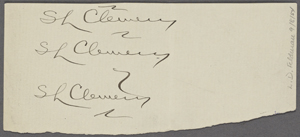 S L Clemens
S L Clemens
S L Clemens